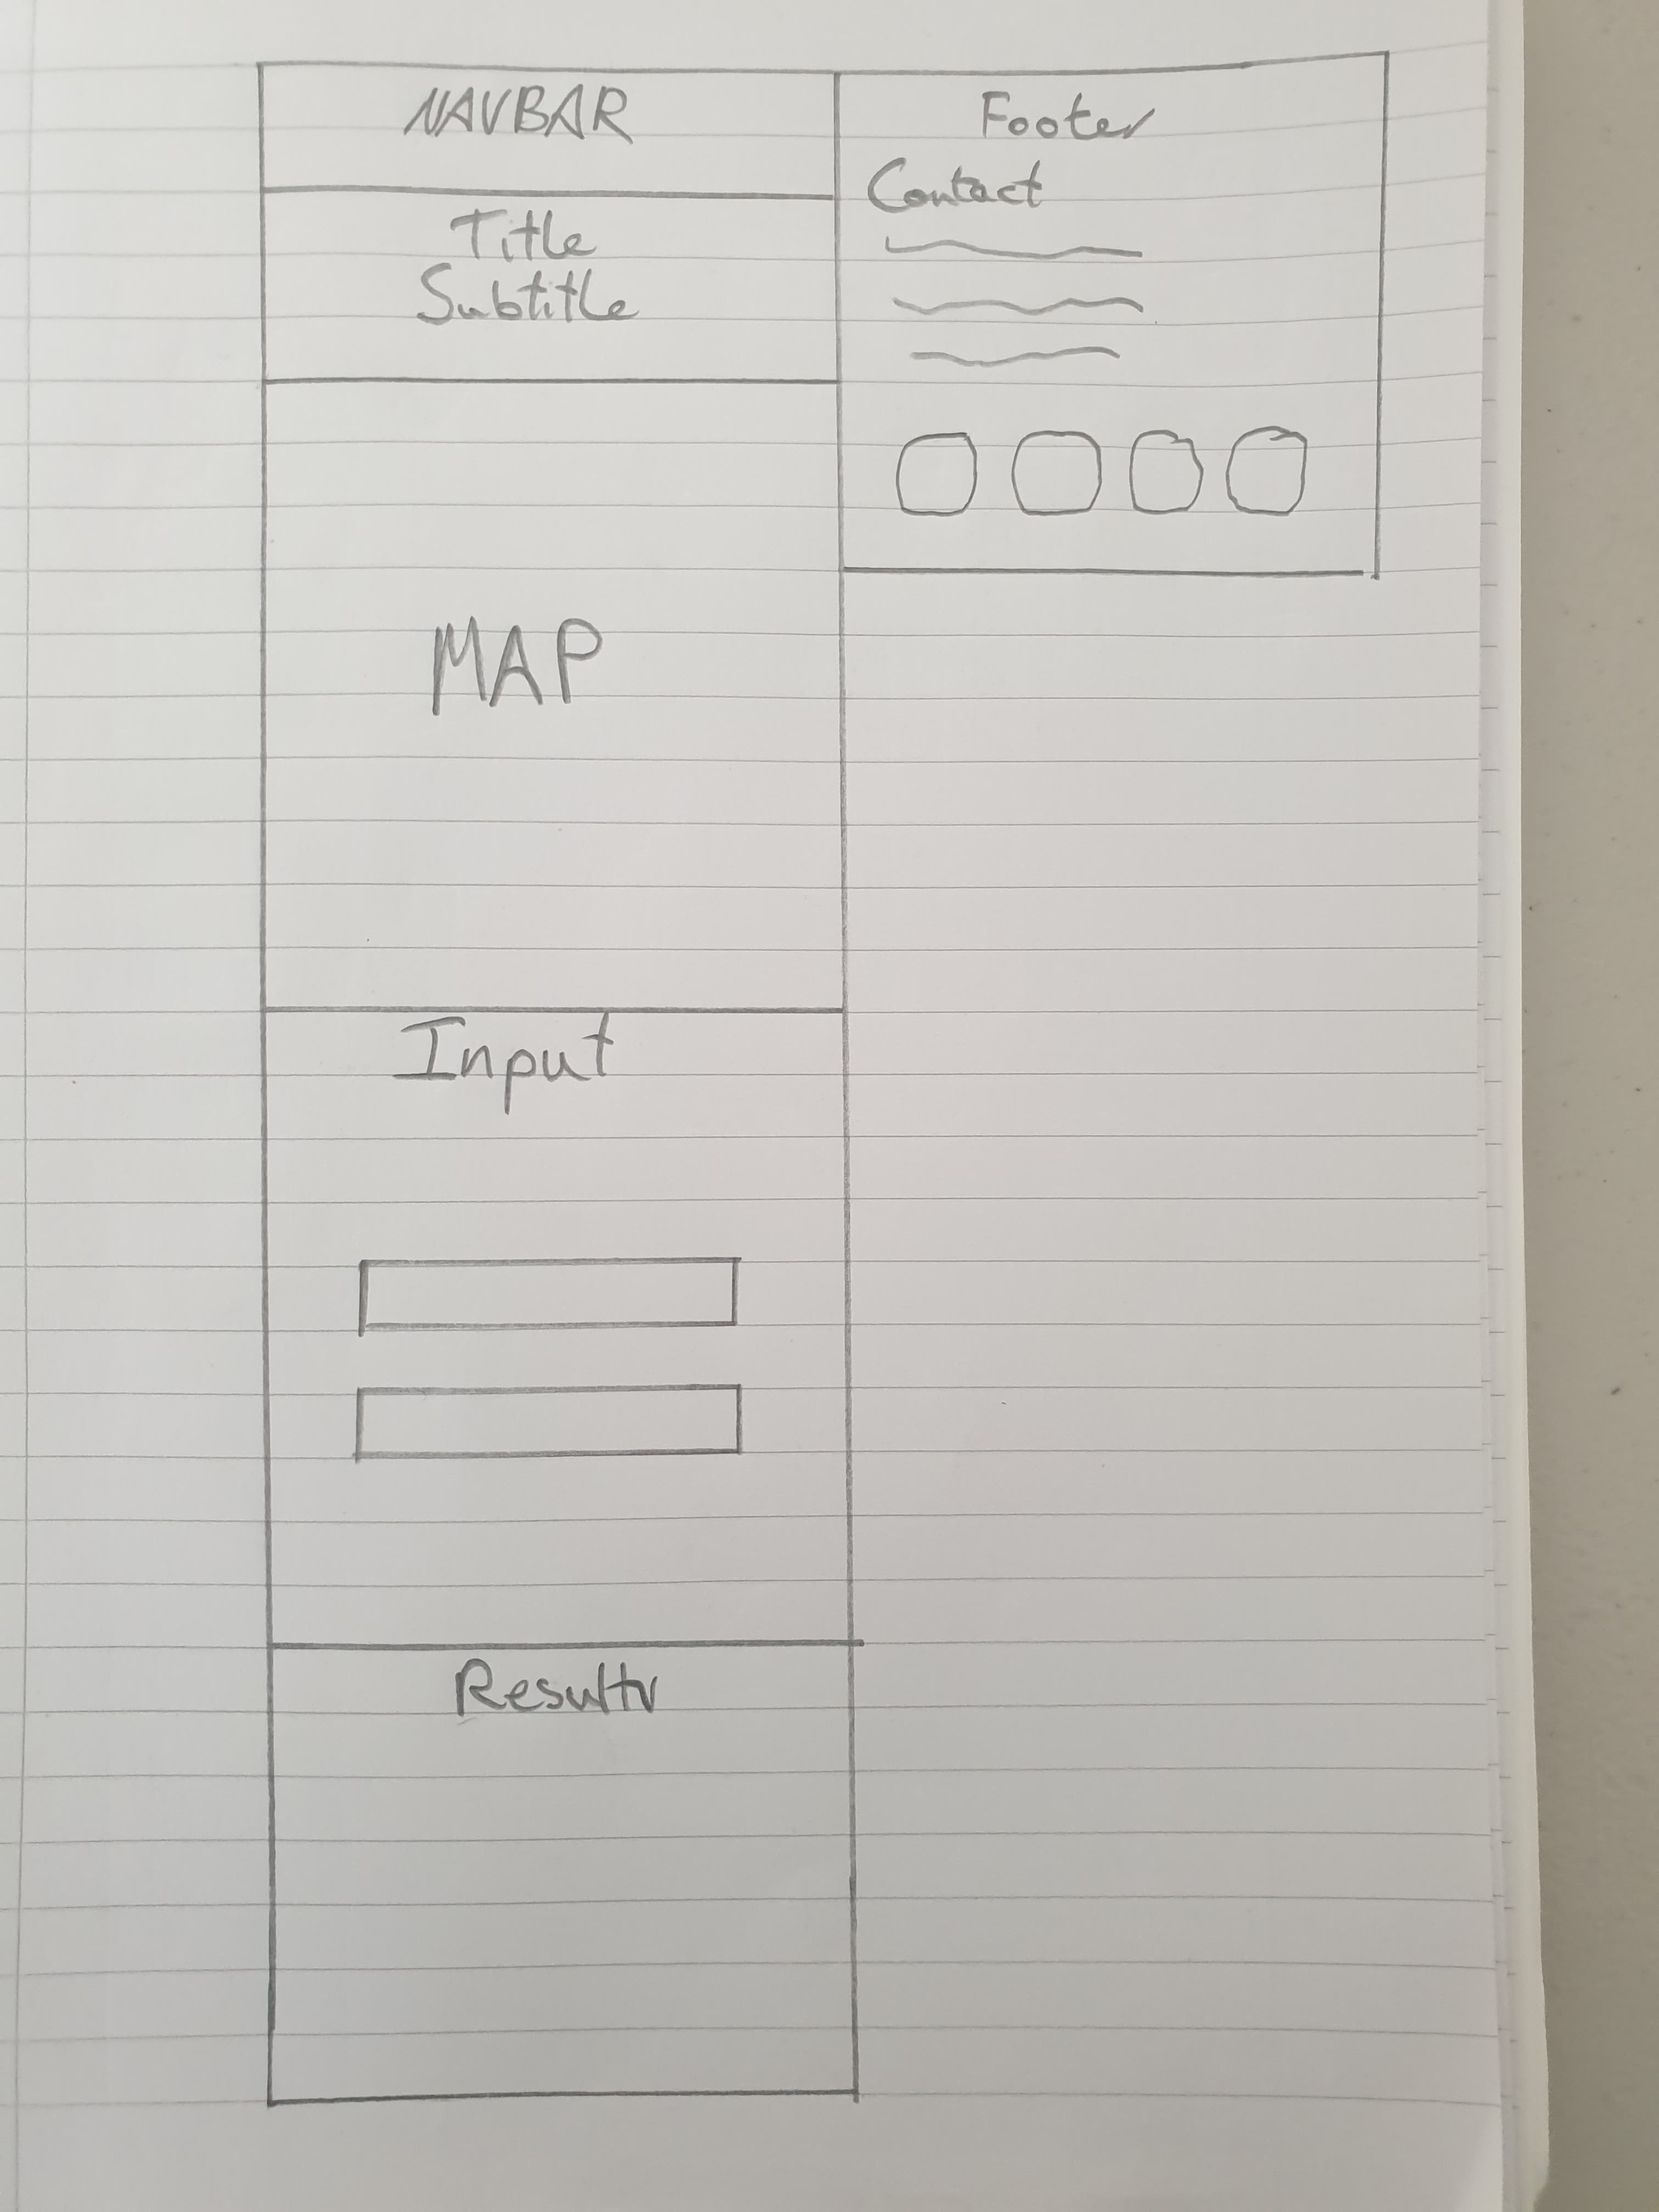 NAVBAR
Title
Subtitle
MAP
Input
Results
Footer
Contact